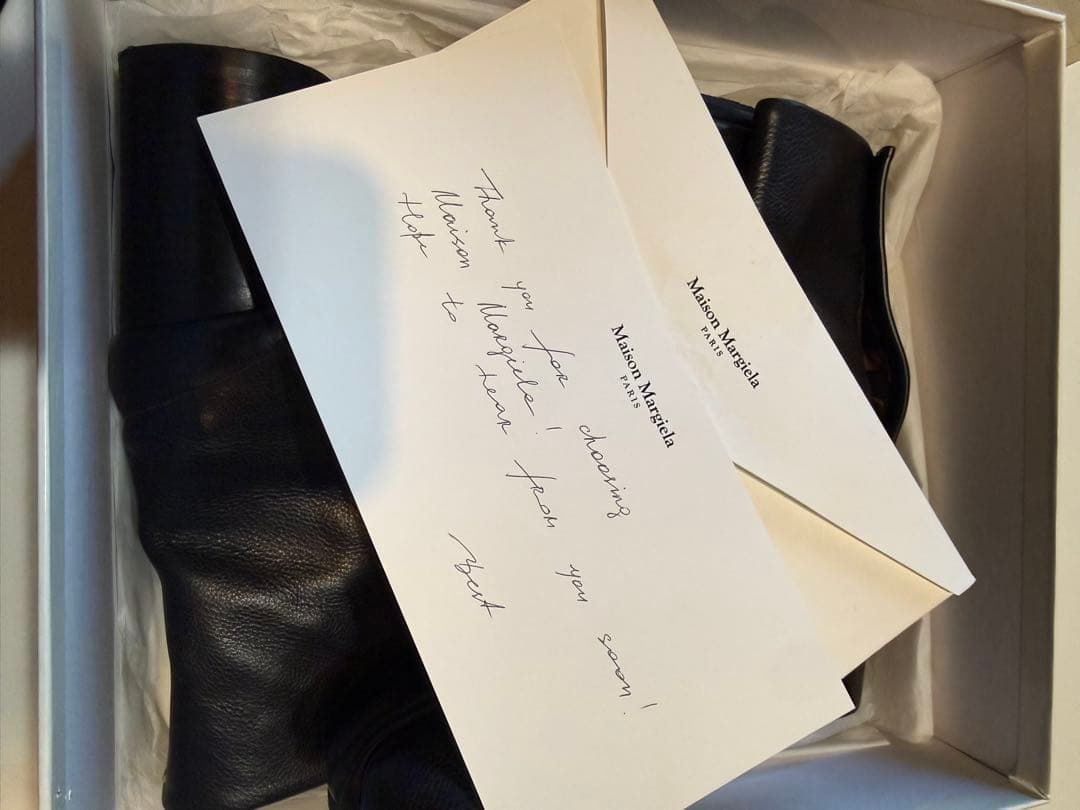 Maison Margiela
PARIS
Maison Margiela
PARIS
Thank you for choosing
Maison Margiela!
Hope to hear from you soon!
Best